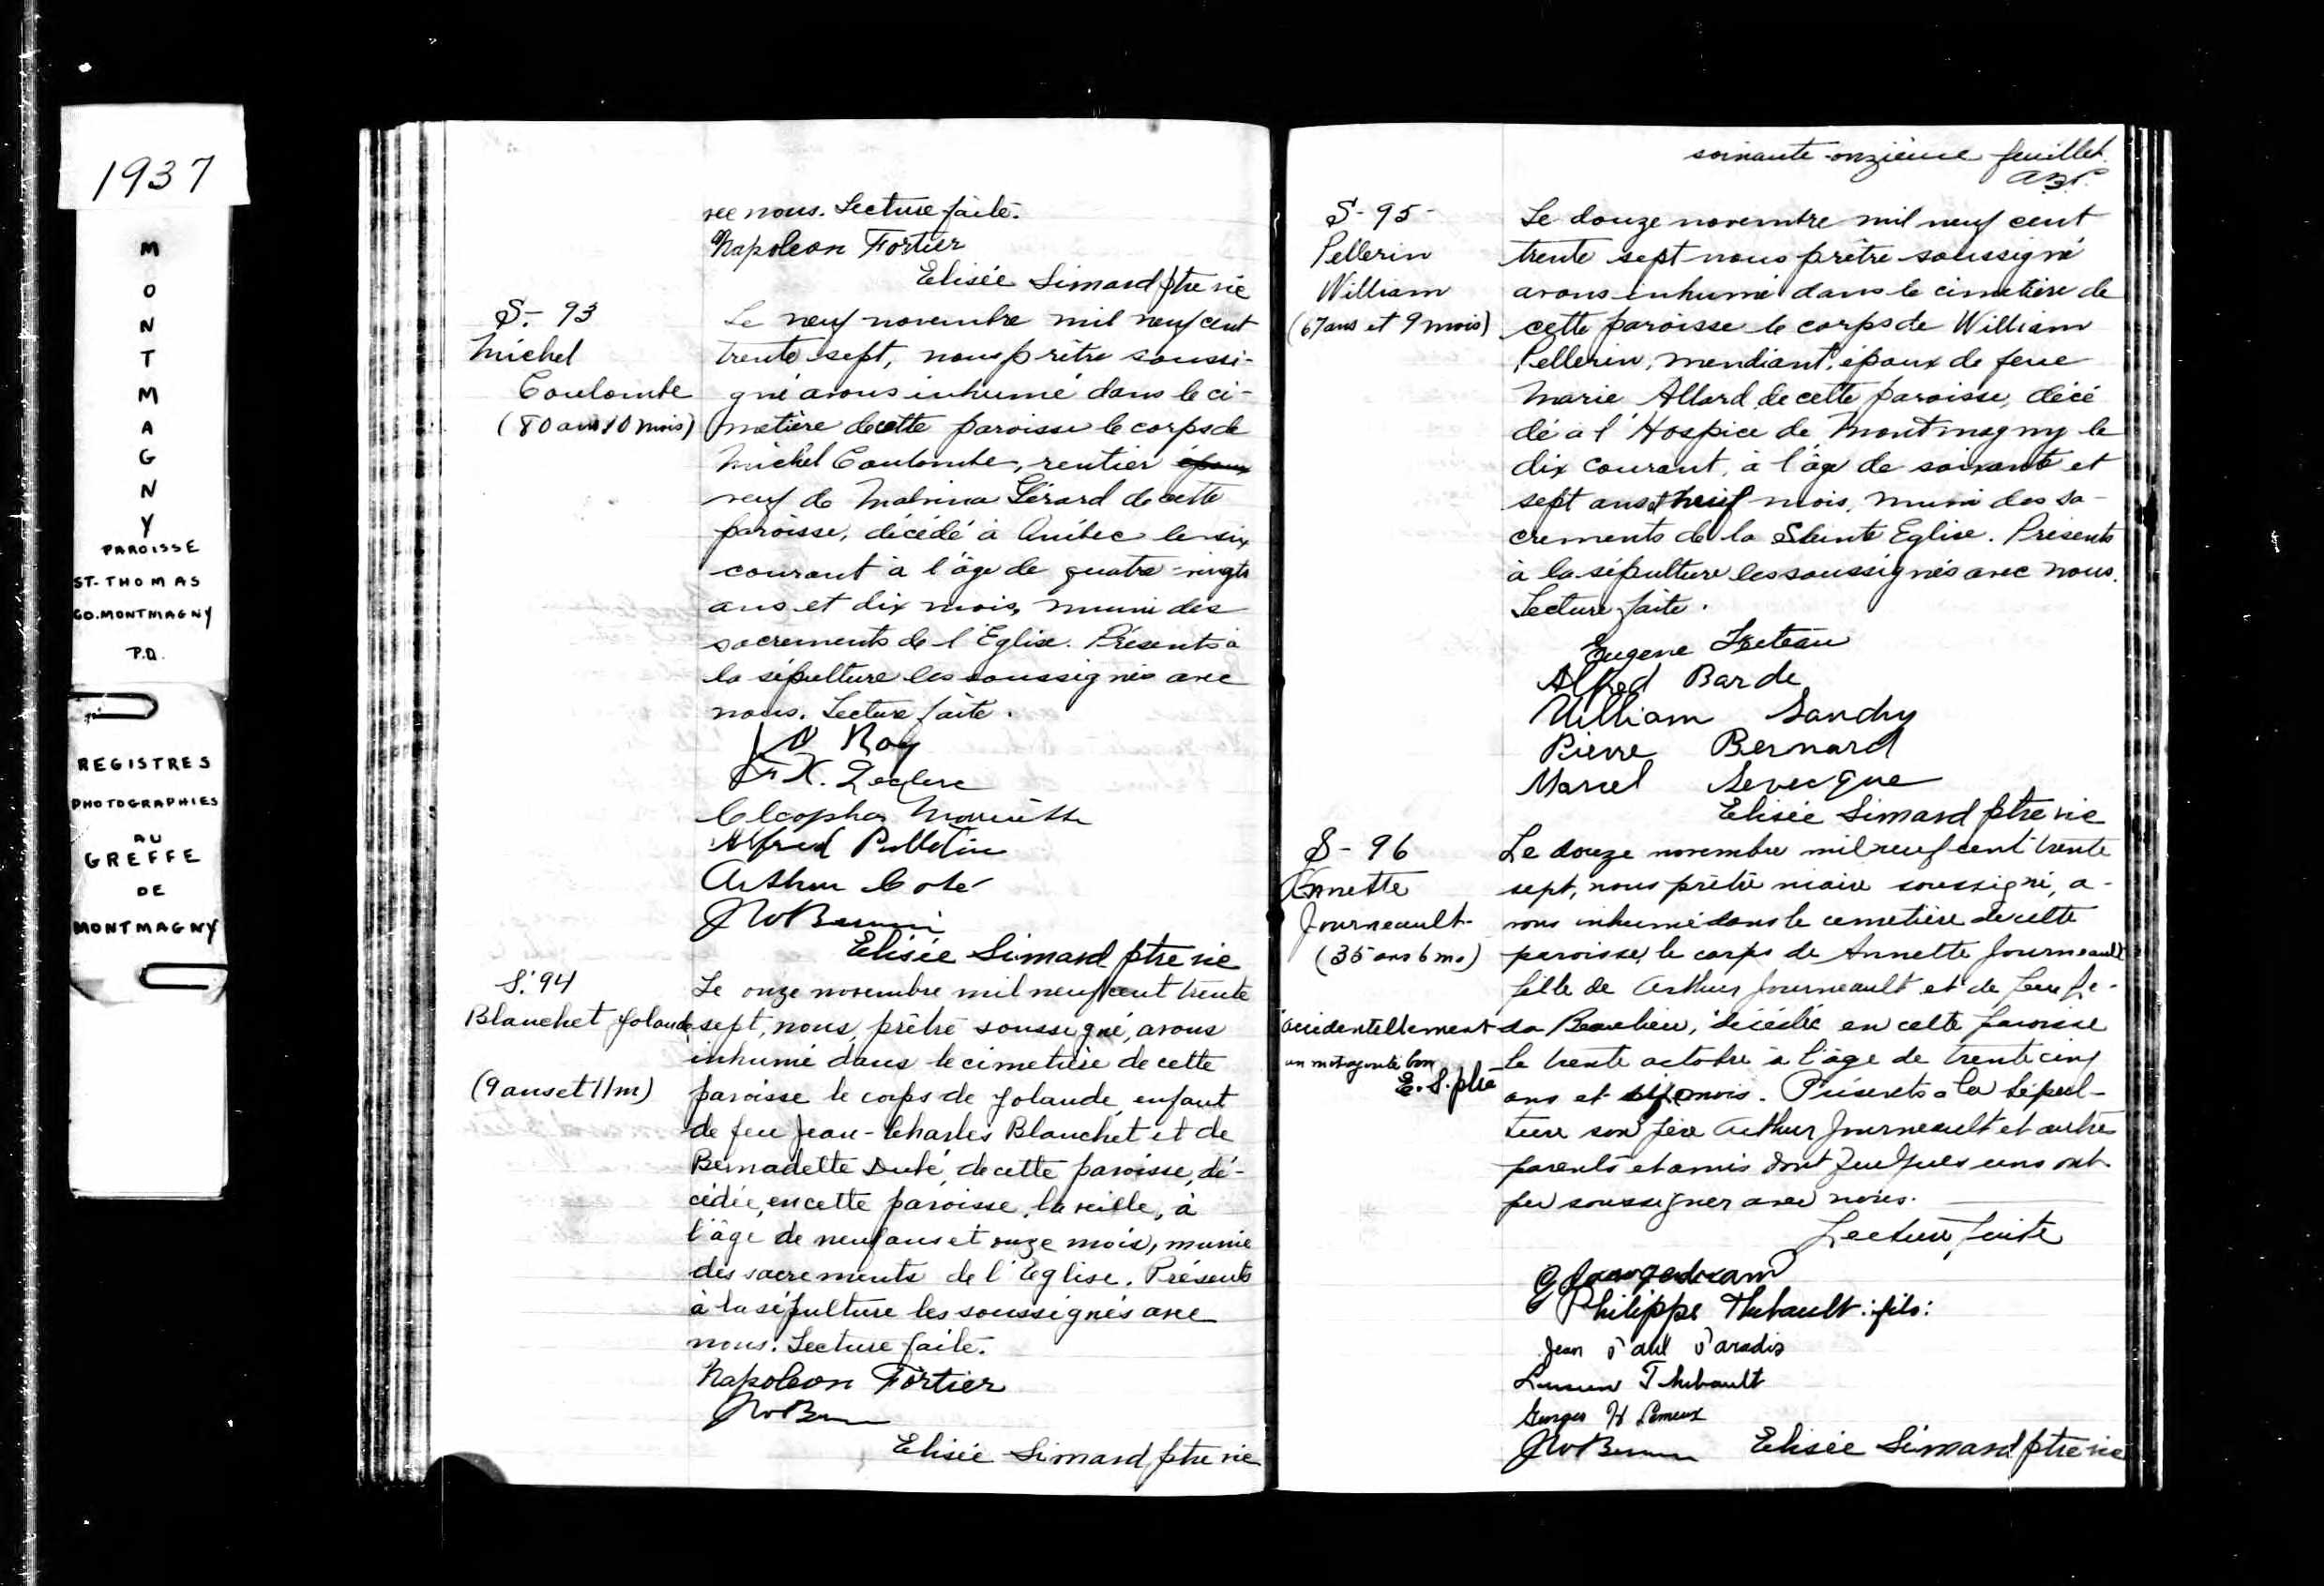 1937
MONTMAGNY
PAROISSE
ST-THOMAS
CO. MONTMAGNY
P.Q.
REGISTRES
PHOTOGRAPHIES
AU
GREFFE
DE
MONTMAGNY
vec nous. Lecture faite.
Napoleon Fortier
Elisée Simard ptre vic
S.- 93
Michel
Coulombe
(80 ans 10 mois)
Le neuf novembre mil neuf cent
trente sept, nous prêtre soussi-
gné avons inhumé dans le ci-
metière de cette paroisse le corps de
Michel Coulombe, rentier époux
veuf de Malvina Gérard de cette
paroisse, décédé à Québec le six
courant à l'âge de quatre-vingts
ans et dix mois, muni des
sacrements de l'Eglise. Présents à
la sépulture les soussignés avec
nous. Lecture faite.
Roy
F X. Leclerc
Cleophas
Alfred Pelletier
Arthur Coté
Elisée Simard ptre vic
S. 94
Blanchet Yolande
(9 ans et 11 m)
Le onze novembre mil neuf cent trente
sept, nous, prêtre soussigné, avons
inhumé dans le cimetière de cette
paroisse le corps de Yolande, enfant
de feu Jean-Charles Blanchet et de
Bernadette Dubé, de cette paroisse, dé-
cédée, en cette paroisse, la veille, à
l'âge de neuf ans et onze mois, munie
des sacrements de l'Eglise. Présents
à la sépulture les soussignés avec
nous. Lecture faite.
Napoleon Fortier
Elisée Simard ptre vic
soixante-onzième feuillet.
S- 95-
Pellerin
William
(67 ans et 9 mois)
Le douze novembre mil neuf cent
trente sept nous prêtre soussigné
avons inhumé dans le cimetière de
cette paroisse le corps de William
Pellerin, mendiant, époux de feue
Marie Allard de cette paroisse, décé
dé à l'Hospice de Montmagny le
dix courant, à l'âge de soixante et
sept ans et neuf mois, muni des sa-
crements de la Sainte Eglise. Présents
à la sépulture les soussignés avec nous.
Lecture faite.
Eugene
Alfred Barde
William Landry
Pierre Bernard
Marcel Levecque
Elisée Simard ptre vic
S- 96
Annette
Journeault
(35 ans 6 ms)
accidentellement
un mot ajouté bon
E. S. ptre
Le douze novembre mil neuf cent trente
sept, nous prêtre vicaire soussigné, a-
vons inhumé dans le cemetière de cette
paroisse, le corps de Annette Journeault
fille de Arthur Journeault et de feue
da Beaulieu, décédée en cette paroisse
le trente octobre à l'âge de trente cinq
ans et six mois. Présents à la sépul-
ture son père Arthur Journeault et autres
parents et amis dont quelques uns ont
pu soussigner avec nous.
Lecture faite
Philippe Thibault: fils:
Jean Paul Paradis
Lucien Thibault
Georges H Lemieux
Elisée Simard ptre vic